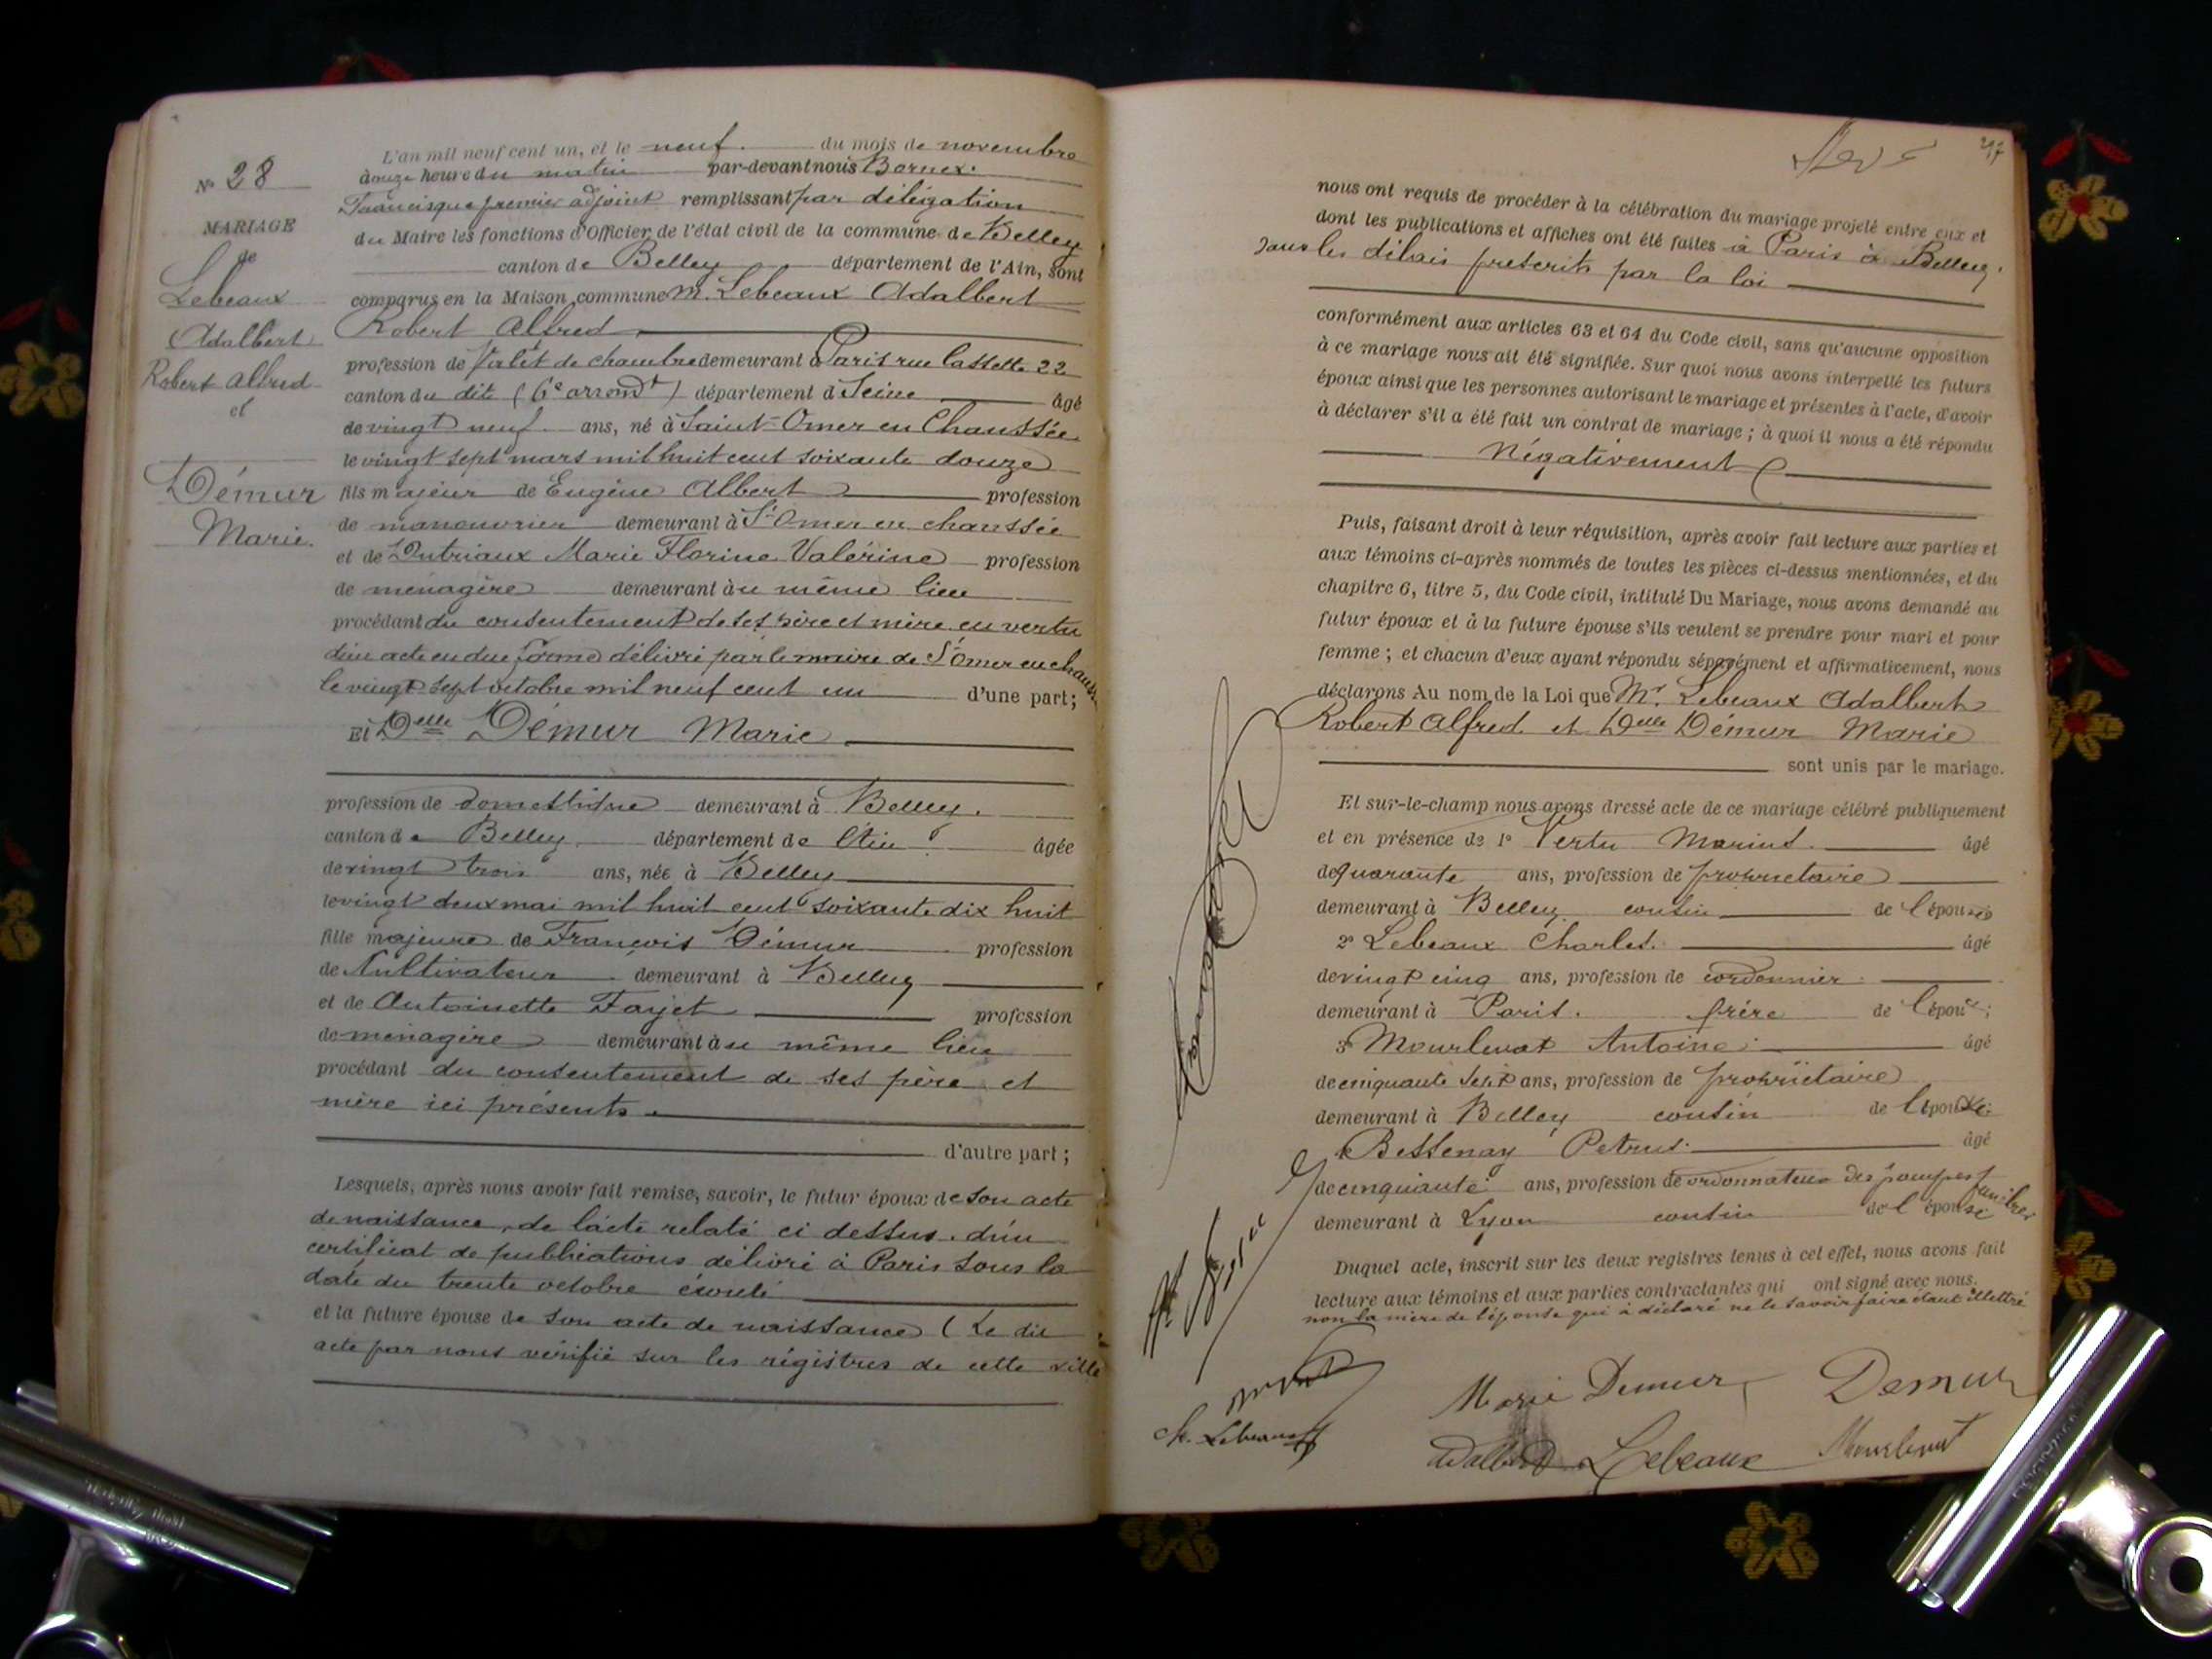 L'an mil neuf cent un, et le neuf du mois de novembre
à onze heure du matin par-devant nous Bornex
Francisque premier adjoint remplissant par délégation
du Maire les fonctions d'Officier de l'état civil de la commune de Belley
canton de Belley département de l'Ain, sont
comparus en la Maison commune M. Lebeaux Adalbert
Robert Alfred
profession de Valet de chambre demeurant à Paris rue Cassette 22
canton du dit (6e arrondt) département d Seine âgé
de vingt neuf ans, né à Saint-Omer en Chaussée
le vingt sept mars mil huit cent soixante douze
fils majeur de Eugène Albert profession
de manouvrier demeurant à St Omer en chaussée
et de Dutriaux Marie Florine Valérine profession
de ménagère demeurant au même lieu
procédant du consentement de ses père et mère en vertu
d'un acte en due forme délivré par le maire de St Omer en chaussée
le vingt sept octobre mil neuf cent un d'une part;
Et Delle Démur Marie
profession de domestique demeurant à Belley.
canton de Belley département de l'Ain âgée
de vingt trois ans, née à Belley
le vingt deux mai mil huit cent soixante dix huit
fille majeure de François Démur profession
de Cultivateur demeurant à Belley
et de Antoinette Fayet profession
de ménagère demeurant au même lieu
procédant du consentement de ses père et
mère ici présents.
d'autre part;
Lesquels, après nous avoir fait remise, savoir, le futur époux de son acte
de naissance, de l'acte relaté ci dessus, d'un
certificat de publications délivré à Paris sous la
date du trente octobre écoulé
et la future épouse de son acte de naissance (Le dit
acte par nous vérifié sur les régistres de cette ville
No 28
MARIAGE
de
Lebeaux
Adalbert
Robert Alfred
et
Démur
Marie.
nous ont requis de procéder à la célébration du mariage projeté entre eux et
dont les publications et affiches ont été faites à Paris à Belley.
dans les délais prescrits par la loi
conformément aux articles 63 et 64 du Code civil, sans qu'aucune opposition
à ce mariage nous ait été signifiée. Sur quoi nous avons interpellé les futurs
époux ainsi que les personnes autorisant le mariage et présentes à l'acte, d'avoir
à déclarer s'il a été fait un contrat de mariage; à quoi il nous a été répondu
Négativement
Puis, faisant droit à leur réquisition, après avoir fait lecture aux parties et
aux témoins ci-après nommés de toutes les pièces ci-dessus mentionnées, et du
chapitre 6, titre 5, du Code civil, intitulé Du Mariage, nous avons demandé au
futur époux et à la future épouse s'ils veulent se prendre pour mari et pour
femme; et chacun d'eux ayant répondu séparément et affirmativement, nous
déclarons Au nom de la Loi que Mr. Lebeaux Adalbert
Robert Alfred et Delle Démur Marie
sont unis par le mariage.
Et sur-le-champ nous avons dressé acte de ce mariage célébré publiquement
et en présence de 1o Vertu Marius. âgé
de quarante ans, profession de propriétaire
demeurant à Belley cousin de l'épouse
2o Lebeaux Charles. âgé
de vingt cinq ans, profession de cordonnier
demeurant à Paris. frère de l'époux;
3o Mourlevat Antoine âgé
de cinquante sept ans, profession de propriétaire
demeurant à Belley cousin de l'épouse;
Bessenay Petrus. âgé
de cinquante ans, profession de ordonnateur des pompes funèbres
demeurant à Lyon cousin de l'épouse
Duquel acte, inscrit sur les deux registres tenus à cet effet, nous avons fait
lecture aux témoins et aux parties contractantes qui ont signé avec nous.
non la mère de l'épouse qui a déclaré ne le savoir faire étant illettré
Marie Demur Demur
Adalbert Lebeaux Mourlevat
Ch. Lebeaux